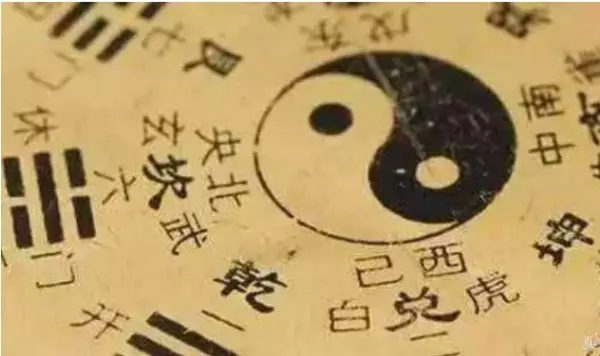 七
艮
门
休
门
六
玄坎武
央北
开
乾
一
己西
白兑虎
二
坤
中